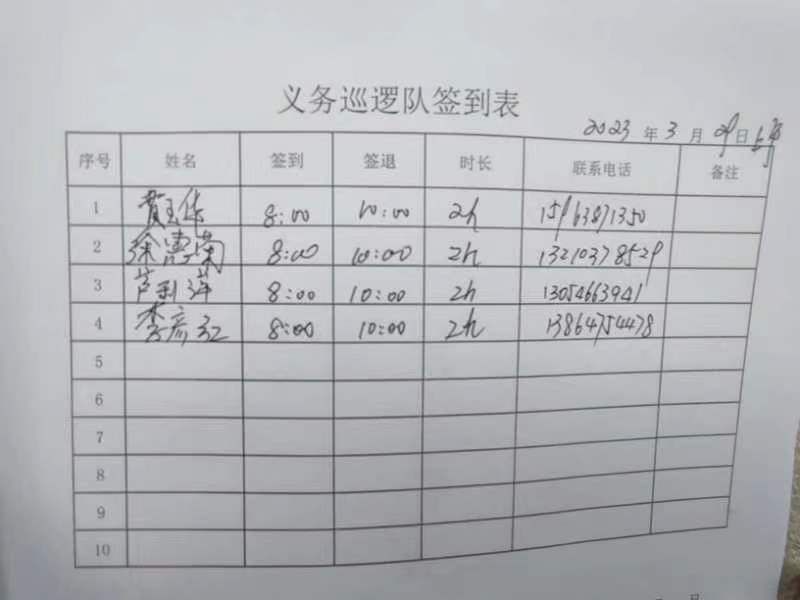 义务巡逻队签到表
2023 年 3 月 29 日 上午
序号 姓名 签到 签退 时长 联系电话 备注
1 8:00 10:00 2h 15963871350
2 徐 8:00 10:00 2h 13210378529
3 芦利萍 8:00 10:00 2h 13054663941
4 李彦红 8:00 10:00 2h 13864754478
5
6
7
8
9
10
月